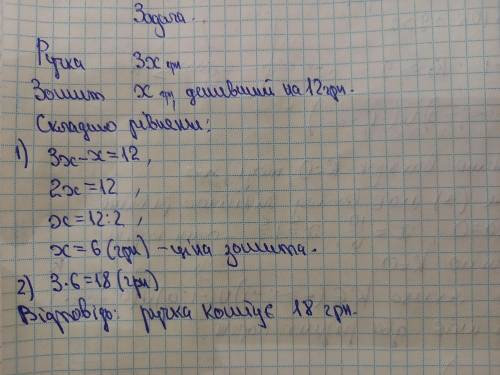 Задача.
Ручка 3x грн
Зошит x грн, дешевший на 12 грн.
Складемо рівняння:
1) 3x-x=12,
2x=12,
x=12:2,
x=6(грн) - ціна зошита.
2) 3·6=18(грн)
Відповідь: ручка коштує 18 грн.